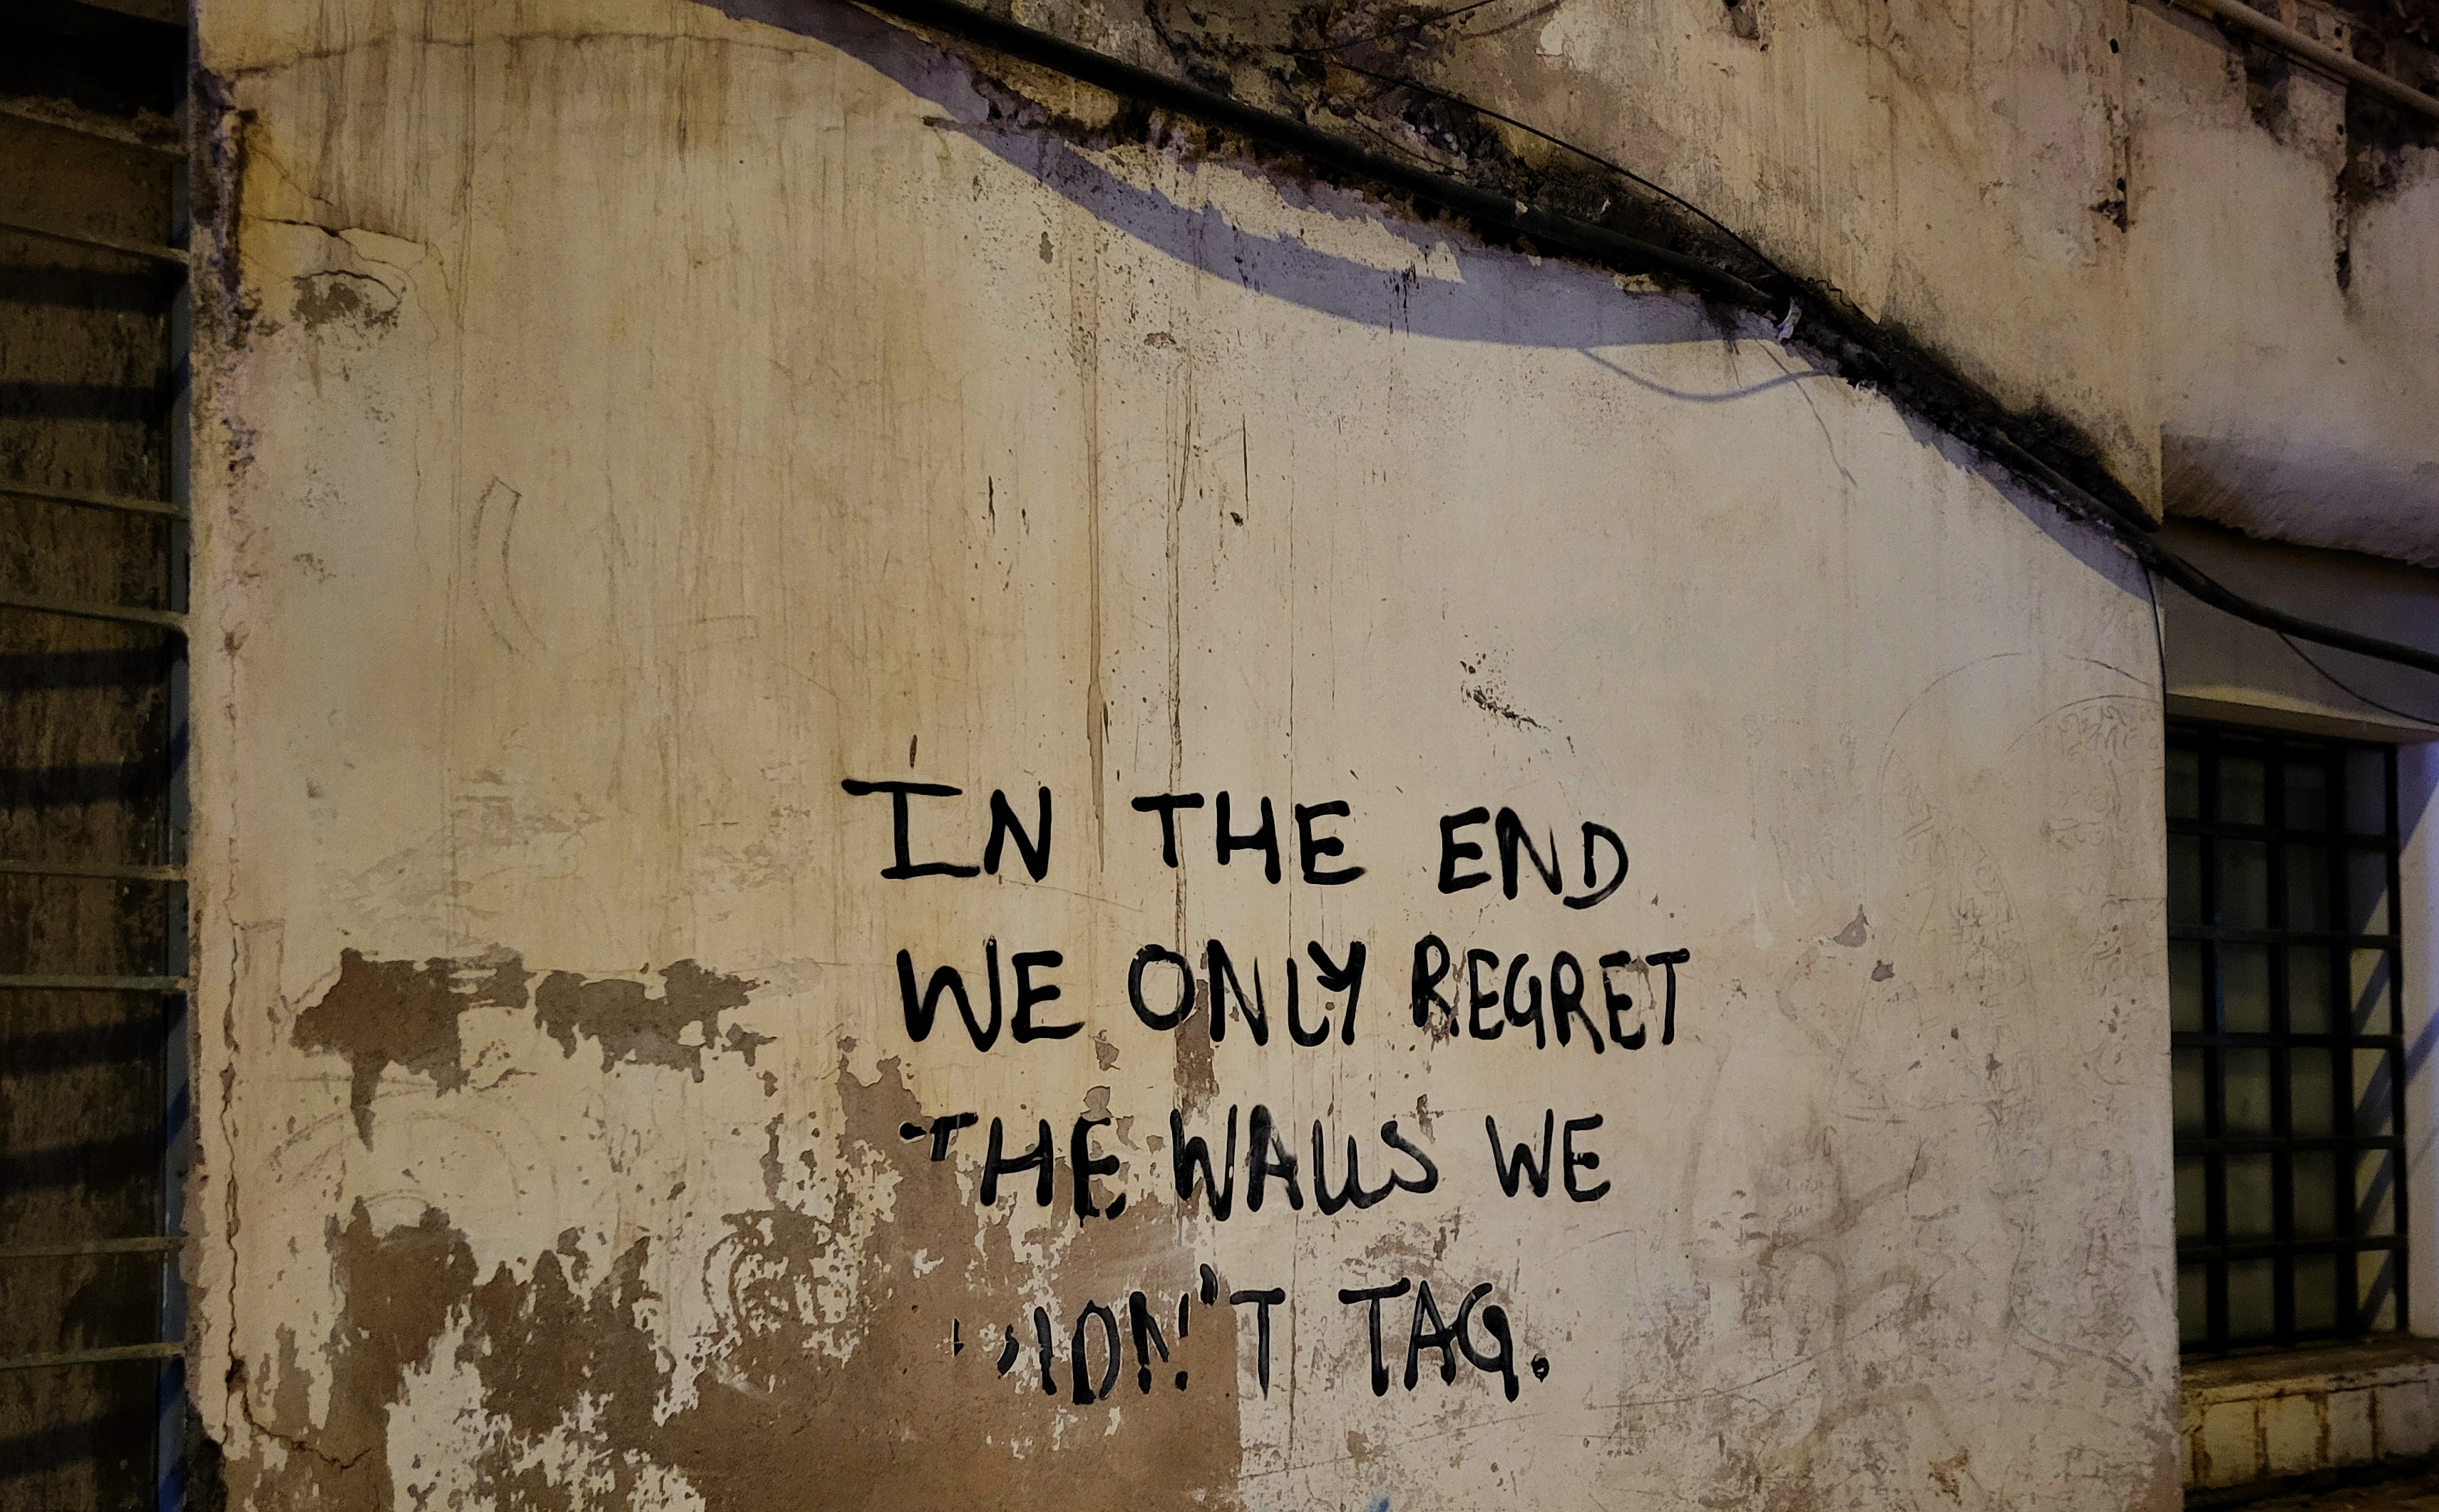 IN THE END
WE ONLY REGRET
THE WALLS WE
DIDN'T TAG.